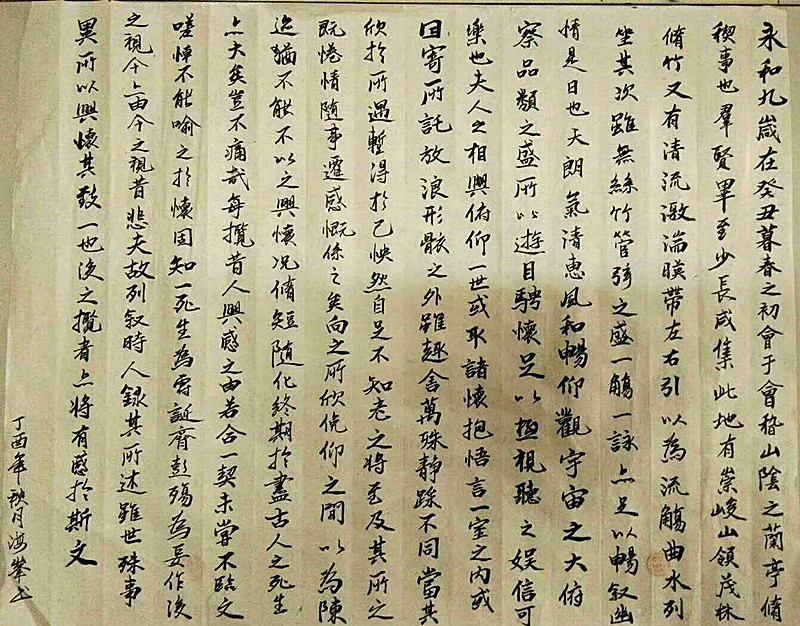 永和九歲在癸丑暮春之初會于會稽山陰之蘭亭脩
禊事也羣賢畢至少長咸集此地有崇峻山領茂林
脩竹又有清流激湍暎帶左右引以為流觴曲水列
坐其次雖無絲竹管弦之盛一觴一詠亦足以暢叙幽
情是日也天朗氣清惠風和暢仰觀宇宙之大俯
察品類之盛所以遊目騁懷足以極視聽之娛信可
樂也夫人之相與俯仰一世或取諸懷抱悟言一室之內或
因寄所託放浪形骸之外雖趣舍萬殊靜躁不同當其
欣於所遇暫得於己怏然自足不知老之將至及其所之
既惓情隨事遷感慨係之矣向之所欣俛仰之間以為陳
迹猶不能不以之興懷況脩短隨化終期於盡古人之死生
亦大矣豈不痛哉每攬昔人興感之由若合一契未嘗不臨文
嗟悼不能喻之於懷固知一死生為虛誕齊彭殤為妄作後
之視今亦由今之視昔悲夫故列叙時人録其所述雖世殊事
異所以興懷其致一也後之攬者亦將有感於斯文
丁酉年秋月海峰书